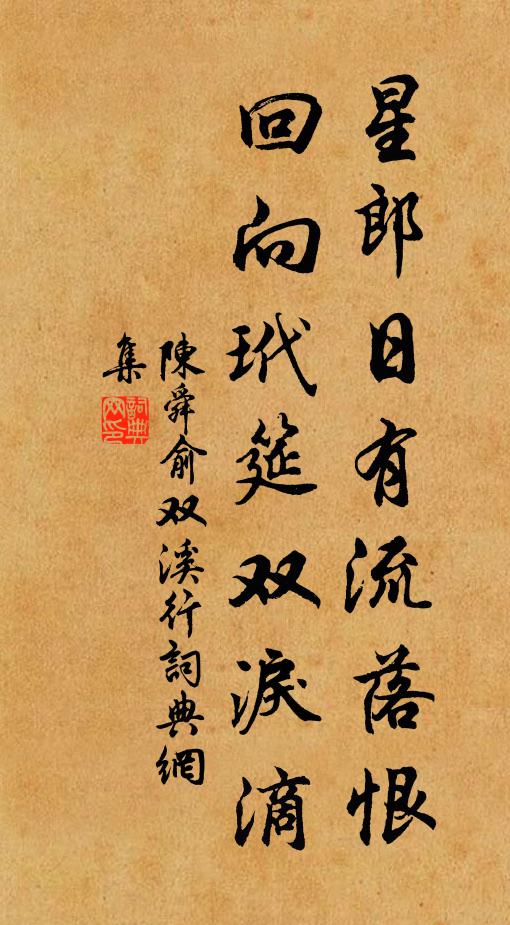 星郎日有流落恨
回向玳筵双淚滴
陳舜俞双溪行詞典網
集
詞典網印